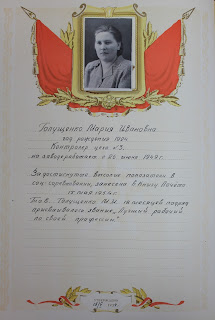 Голущенко Мария Ивановна
год рождения 1924.
Контролер цеха №3.
на заводе работает с 20 июня 1942 г.
За достигнутые высокие показатели в
соц. соревновании, занесена в Книгу Почета
Тов. Голущенко М.И. 18 месяцев подряд
присваивалось звание „Лучший рабочий
по своей профессии"